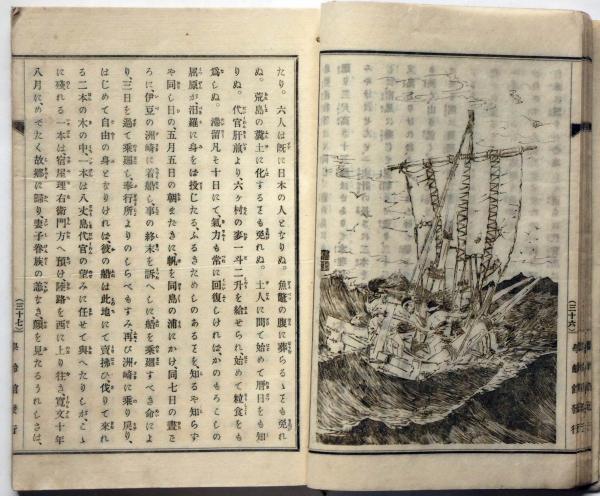 (三十六)
學齡館發行
たり。六人は既に日本の人となりぬ。魚鼈の腹に葬らるゝとも免れ
ぬ。荒島の糞土に化するとも免れぬ。土人に問て始めて曆日をも知
りぬ。代官肝煎より、六ヶ村の麥一斗二升を給せられ始めて粒食をも
爲しぬ。滯留凡そ十日にて、氣力も常に回復しければ、かのもろこしの
屈原が汨羅に身をば投じたる、ふるきためしのあるとを、知るや知らず
や同し日の五月五日の朝まだきに、帆を同島の浦にかけ、同七日の晝と
ろに、伊豆の洲崎に着船し、事の終末を訴へしに、船を乘廻すべき命によ
り、三日を過て乘廻し、奉行所よりのしらべもすみ、再び洲崎に乘り戾り、
はじめて自由の身となりければ、彼の船は此地にて賣拂ひ、伐りて來れ
る二本の木の中、一本は八丈島代官の望みに任せて與へたりしが、こゝ
に殘れる一本は宿屋理右衛門方へ預け、陸路を西に上り往き、寛文十年
八月に、めでたく故郷に歸り、妻子眷族の恙なき、顏を見たるうれしさは、
(三十七)
學齡館發行